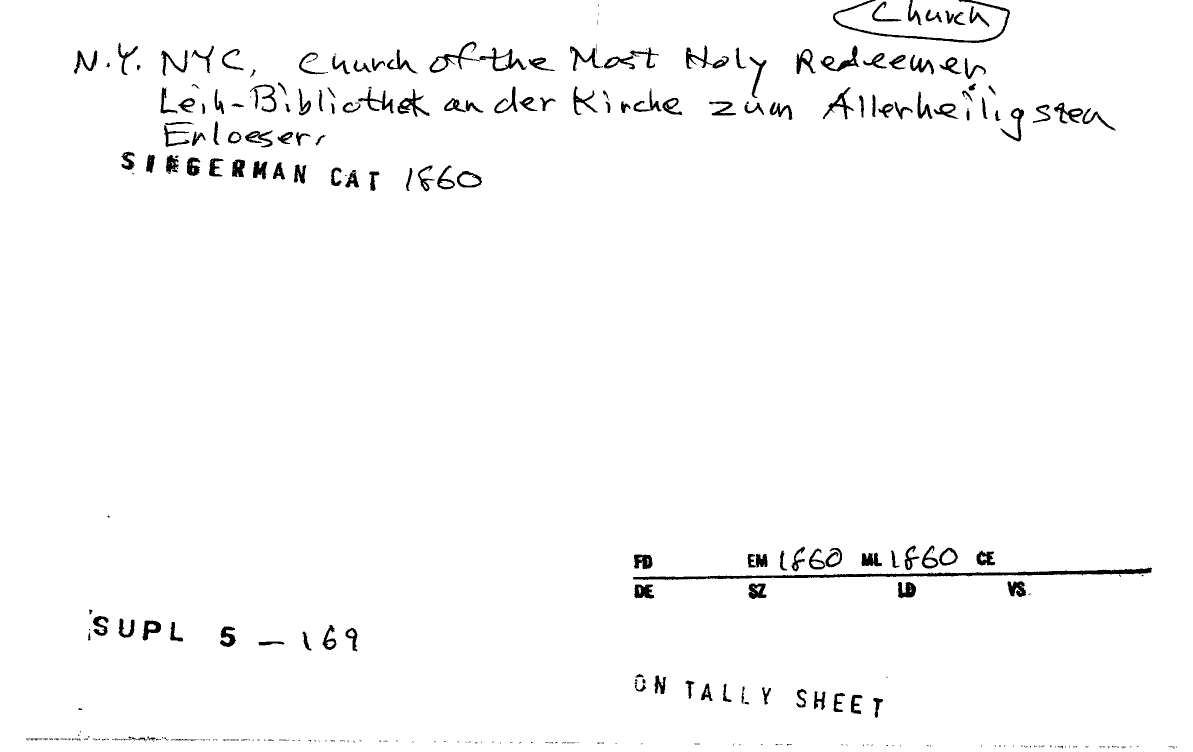 Church
N.Y. NYC, Church of the Most Holy Redeemer
Leih-Bibliothek an der Kirche zum Allerheiligsten
Erloeser,
SINGERMAN CAT 1860
FD EM 1860 ML 1860 CE
DE SZ LD VS
SUPL 5 - 169
ON TALLY SHEET